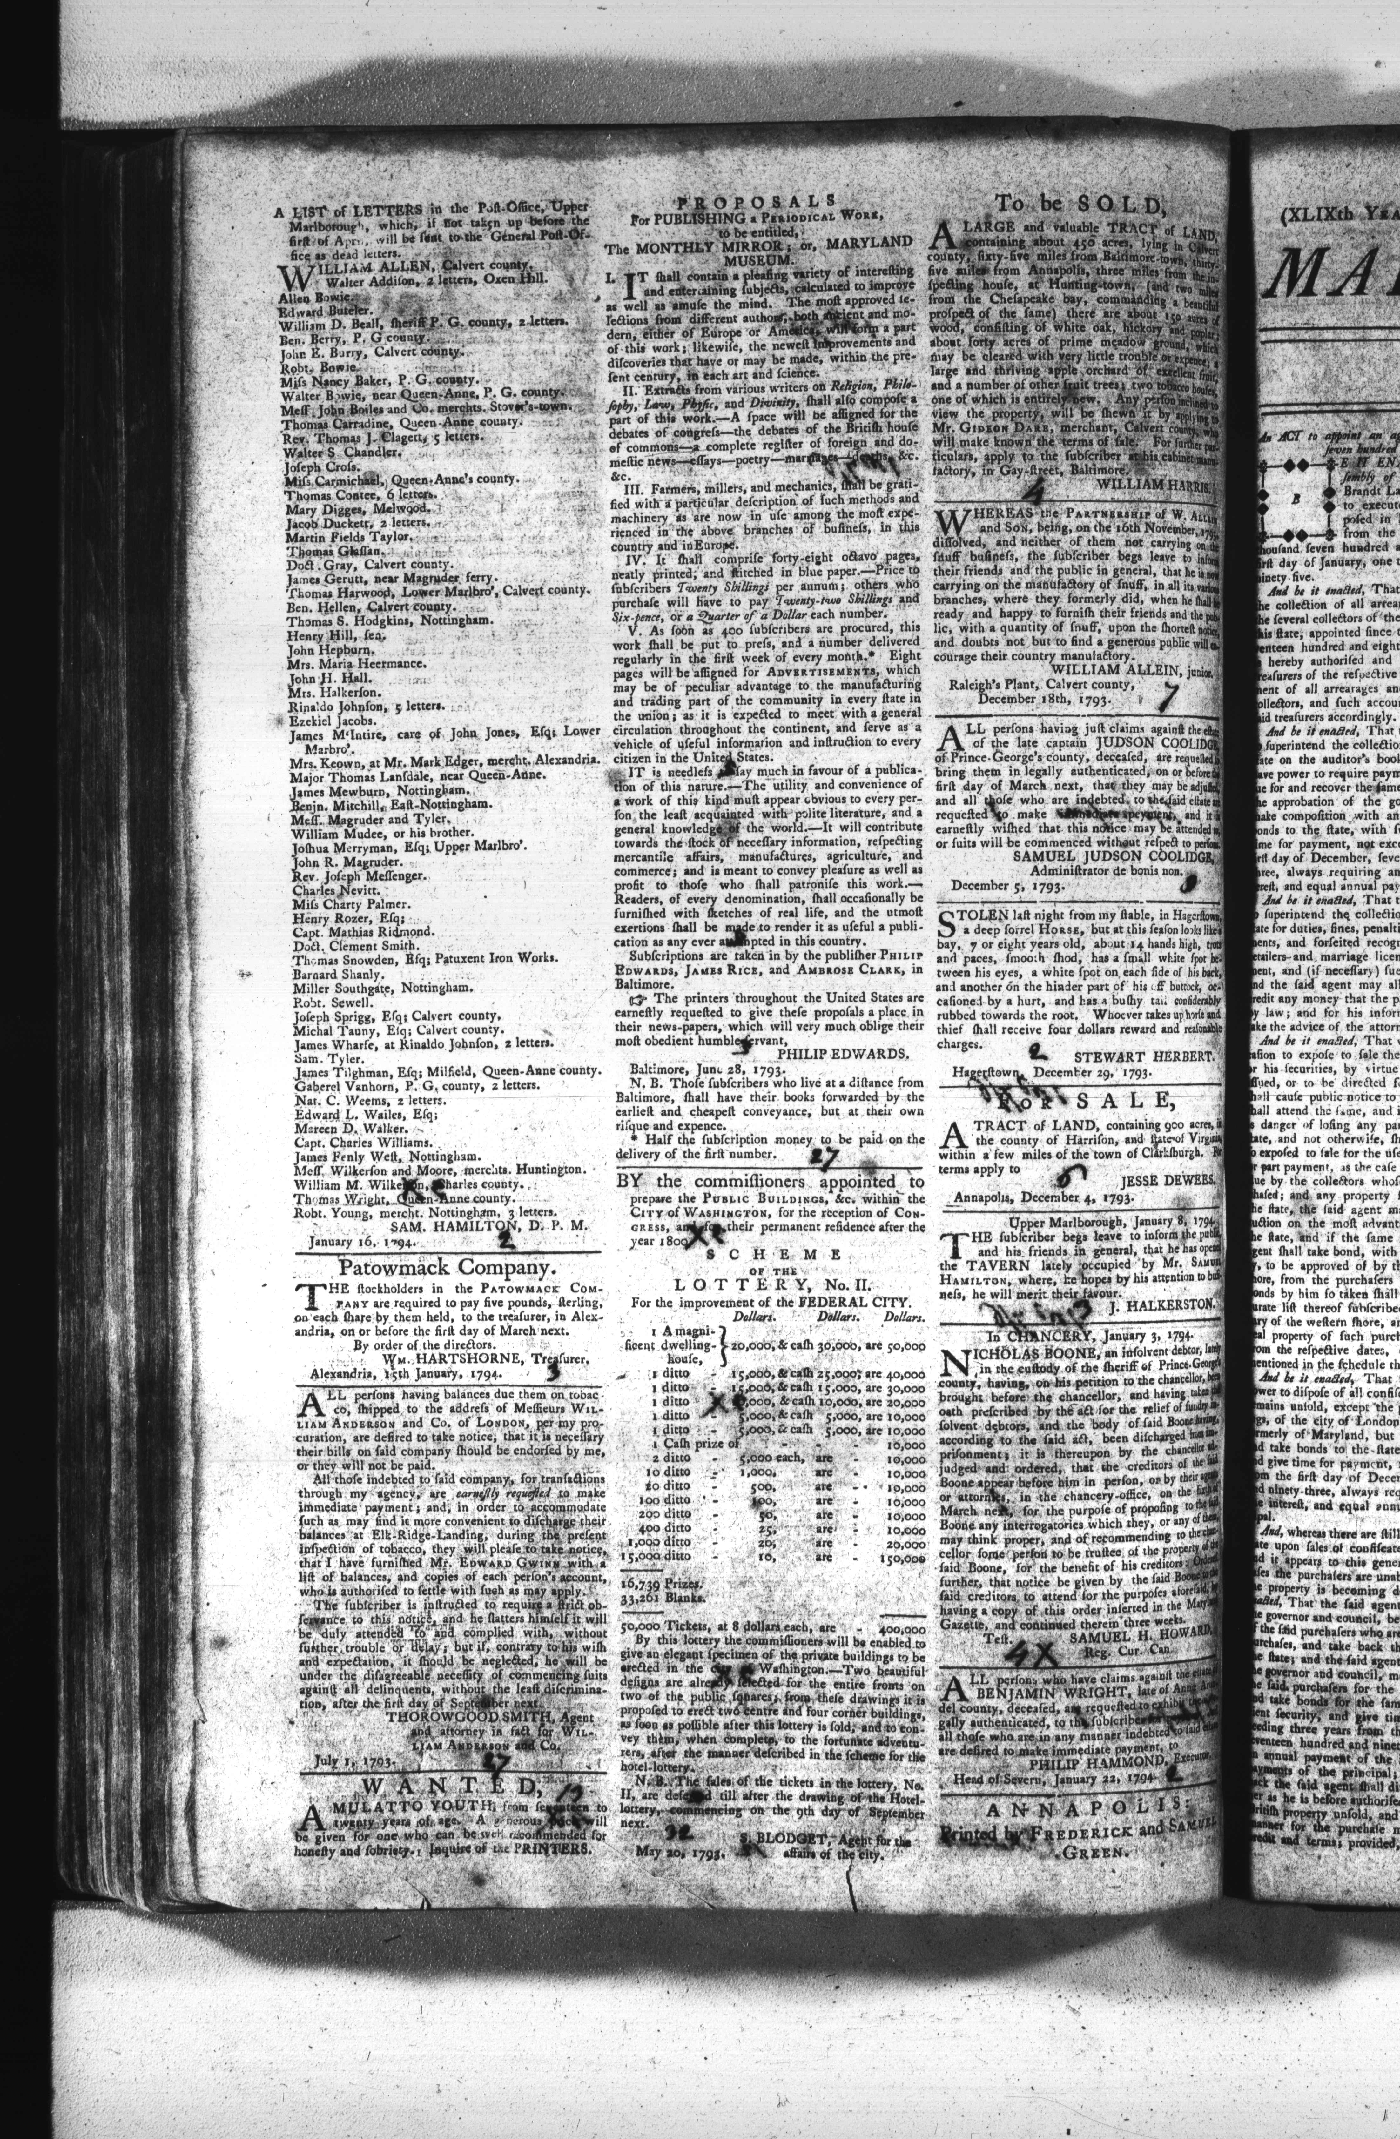 A LIST of LETTERS in the Post-Office, Upper
Marlborough, which, if not taken up before the
first of April, will be sent to the General Post-Of-
fice as dead letters.
WILLIAM ALLEN, Calvert county.
Walter Addison, 2 letters, Oxen Hill.
Allen Bowie.
Edward Buteler.
William D. Beall, sheriff P. G. county, 2 letters.
Ben. Berry, P. G county.
John E. Burry, Calvert county.
Robt. Bowie.
Miss Nancy Baker, P. G. county.
Walter Bowie, near Queen-Anne, P. G. county.
Mess. John Boiles and Co. merchts. Stover's-town.
Thomas Carradine, Queen-Anne county.
Rev. Thomas J. Clagett, 5 letters.
Walter S Chandler.
Joseph Cross.
Miss Carmichael, Queen-Anne's county.
Thomas Contee, 6 letters.
Mary Digges, Melwood.
Jacob Duckett, 2 letters.
Martin Fields Taylor.
Thomas Glassan.
Doct. Gray, Calvert county.
James Gerutt, near Magruder ferry.
Thomas Harwood, Lower Marlbro', Calvert county.
Ben. Hellen, Calvert county.
Thomas S. Hodgkins, Nottingham.
Henry Hill, sen.
John Hepburn.
Mrs. Maria Heermance.
John H. Hall.
Mrs. Halkerson.
Rinaldo Johnson, 5 letters.
Ezekiel Jacobs.
James M'Intire, care of John Jones, Esq; Lower
Marbro'.
Mrs. Keown, at Mr. Mark Edger, mercht. Alexandria.
Major Thomas Lansdale, near Queen-Anne.
James Mewburn, Nottingham.
Benjn. Mitchill, East-Nottingham.
Mess. Magruder and Tyler.
William Mudee, or his brother.
Joshua Merryman, Esq; Upper Marlbro'.
John R. Magruder.
Rev. Joseph Messenger.
Charles Nevitt.
Miss Charty Palmer.
Henry Rozer, Esq;
Capt. Mathias Ridmond.
Doct. Clement Smith.
Thomas Snowden, Esq; Patuxent Iron Works.
Barnard Shanly.
Miller Southgate, Nottingham.
Robt. Sewell.
Joseph Sprigg, Esq; Calvert county,
Michal Tauny, Esq; Calvert county.
James Wharfe, at Rinaldo Johnson, 2 letters.
Sam. Tyler.
James Tilghman, Esq; Milfield, Queen-Anne county.
Gaberel Vanhorn, P. G. county, 2 letters.
Nat. C. Weems, 2 letters.
Edward L. Wailes, Esq;
Mareen D. Walker.
Capt. Charles Williams.
James Fenly West, Nottingham.
Mess. Wilkerson and Moore, merchts. Huntington.
William M. Wilkerson, Charles county.
Thomas Wright, Queen-Anne county.
Robt. Young, mercht. Nottingham, 3 letters.
SAM. HAMILTON, D. P. M.
January 16, 1794. 2
Patowmack Company.
THE stockholders in the PATOWMACK COM-
PANY are required to pay five pounds, sterling,
on each share by them held, to the treasurer, in Alex-
andria, on or before the first day of March next.
By order of the directors.
WM. HARTSHORNE, Treasurer,
Alexandria, 15th January, 1794. 3
ALL persons having balances due them on tobac-
co, shipped to the address of Messieurs WIL-
LIAM ANDERSON and Co. of LONDON, per my pro-
curation, are desired to take notice, that it is necessary
their bills on said company should be endorsed by me,
or they will not be paid.
All those indebted to said company, for transactions
through my agency, are earnestly requested to make
immediate payment; and, in order to accommodate
such as may find it more convenient to discharge their
balances at Elk-Ridge-Landing, during the present
inspection of tobacco, they will please to take notice,
that I have furnished Mr. EDWARD GWINN with a
list of balances, and copies of each person's account,
who is authorised to settle with such as may apply.
The subscriber is instructed to require a strict ob-
servance to this notice, and he flatters himself it will
be duly attended to and complied with, without
further trouble or delay; but if, contrary to his wish
and expectation, it should be neglected, he will be
under the disagreeable necessity of commencing suits
against all delinquents, without the least discrimina-
tion, after the first day of September next.
THOROWGOOD SMITH, Agent
and attorney in fact for WIL-
LIAM ANDERSON and Co.
July 1, 1793. 27
WANTED,
A MULATTO YOUTH, from seventeen to
twenty years of age. A generous price will
be given for one who can be well recommended for
honesty and sobriety. Inquire of the PRINTERS.
PROPOSALS
For PUBLISHING a PERIODICAL WORK,
to be entitled,
The MONTHLY MIRROR; or, MARYLAND
MUSEUM.
I. IT shall contain a pleasing variety of interesting
and entertaining subjects, calculated to improve
as well as amuse the mind. The most approved se-
lections from different authors, both ancient and mo-
dern, either of Europe or America, will form a part
of this work; likewise, the newest improvements and
discoveries that have or may be made, within the pre-
sent century, in each art and science.
II. Extracts from various writers on Religion, Philo-
sophy, Law, Physic, and Divinity, shall also compose a
part of this work.—A space will be assigned for the
debates of congress—the debates of the British house
of commons—a complete register of foreign and do-
mestic news—essays—poetry—marriages—deaths, &c.
&c.
III. Farmers, millers, and mechanics, shall be grati-
fied with a particular description of such methods and
machinery as are now in use among the most expe-
rienced in the above branches of business, in this
country and in Europe.
IV. It shall comprise forty-eight octavo pages,
neatly printed, and stitched in blue paper.—Price to
subscribers Twenty Shillings per annum; others who
purchase will have to pay Twenty-two Shillings and
Six-pence, or a Quarter of a Dollar each number.
V. As soon as 400 subscribers are procured, this
work shall be put to press, and a number delivered
regularly in the first week of every month.* Eight
pages will be assigned for ADVERTISEMENTS, which
may be of peculiar advantage to the manufacturing
and trading part of the community in every state in
the union; as it is expected to meet with a general
circulation throughout the continent, and serve as a
vehicle of useful information and instruction to every
citizen in the United States.
IT is needless to say much in favour of a publica-
tion of this nature.—The utility and convenience of
a work of this kind must appear obvious to every per-
son the least acquainted with polite literature, and a
general knowledge of the world.—It will contribute
towards the stock of necessary information, respecting
mercantile affairs, manufactures, agriculture, and
commerce; and is meant to convey pleasure as well as
profit to those who shall patronise this work.—
Readers, of every denomination, shall occasionally be
furnished with sketches of real life, and the utmost
exertions shall be made to render it as useful a publi-
cation as any ever attempted in this country.
Subscriptions are taken in by the publisher PHILIP
EDWARDS, JAMES RICE, and AMBROSE CLARK, in
Baltimore.
☞ The printers throughout the United States are
earnestly requested to give these proposals a place in
their news-papers, which will very much oblige their
most obedient humble servant,
PHILIP EDWARDS.
Baltimore, June 28, 1793.
N. B. Those subscribers who live at a distance from
Baltimore, shall have their books forwarded by the
earliest and cheapest conveyance, but at their own
risque and expence.
* Half the subscription money to be paid on the
delivery of the first number. 27
BY the commissioners appointed to
prepare the PUBLIC BUILDINGS, &c. within the
CITY of WASHINGTON, for the reception of CON-
GRESS, and for their permanent residence after the
year 1800
SCHEME
OF THE
LOTTERY, No. II.
For the improvement of the FEDERAL CITY.
Dollars. Dollars. Dollars.
1 A magni-
ficent dwelling- } 20,000, & cash 30,000, are 50,000
house,
1 ditto - 15,000, & cash 25,000, are 40,000
1 ditto - 15,000, & cash 15,000, are 30,000
1 ditto ,000, & cash 10,000, are 20,000
1 ditto 5,000, & cash 5,000, are 10,000
1 ditto - 5,000, & cash 5,000, are 10,000
1 Cash prize of - - 10,000
2 ditto - 5,000 each, are - 10,000
10 ditto - 1,000, are - 10,000
20 ditto - 500, are - 10,000
100 ditto - 100, are - 10,000
200 ditto - 50, are - 10,000
400 ditto - 25, are - 10,000
1,000 ditto - 20, are - 20,000
15,000 ditto - 10, are - 150,000
16,739 Prizes.
33,261 Blanks.
50,000 Tickets, at 8 dollars each, are - 400,000
By this lottery the commissioners will be enabled to
give an elegant specimen of the private buildings to be
erected in the city of Washington.—Two beautiful
designs are already selected for the entire fronts on
two of the public squares; from these drawings it is
proposed to erect two centre and four corner buildings,
as soon as possible after this lottery is sold, and to con-
vey them, when complete, to the fortunate adventu-
rers, after the manner described in the scheme for the
hotel-lottery.
N. B. The sales of the tickets in the lottery, No.
II, are deferred till after the drawing of the Hotel-
lottery, commencing on the 9th day of September
next. 32
S. BLODGET, Agent for the
May 20, 1793. affairs of the city.
To be SOLD,
A LARGE and valuable TRACT of LAND,
containing about 450 acres, lying in Calvert
county, sixty-five miles from Baltimore-town, thirty-
five miles from Annapolis, three miles from the in-
specting house, at Hunting-town, (and two miles
from the Chesapeake bay, commanding a beautiful
prospect of the same) there are about 150 acres of
wood, consisting of white oak, hickory and poplar;
about forty acres of prime meadow ground, which
may be cleared with very little trouble or expence; a
large and thriving apple orchard of excellent fruit,
and a number of other fruit trees; two tobacco houses,
one of which is entirely new. Any person inclined to
view the property, will be shewn it by applying to
Mr. GIDEON DARE, merchant, Calvert county, who
will make known the terms of sale. For further par-
ticulars, apply to the subscriber at his cabinet manu-
factory, in Gay-street, Baltimore.
WILLIAM HARRIS.
4
WHEREAS the PARTNERSHIP of W. ALLEIN
and SON, being, on the 16th November, 179
dissolved, and neither of them not carrying on the
snuff business, the subscriber begs leave to inform
their friends and the public in general, that he is now
carrying on the manufactory of snuff, in all its various
branches, where they formerly did, when he shall be
ready and happy to furnish their friends and the pub-
lic, with a quantity of snuff, upon the shortest notice,
and doubts not but to find a generous public will en-
courage their country manufactory.
WILLIAM ALLEIN, junior.
Raleigh's Plant, Calvert county,
December 18th, 1793. 7
ALL persons having just claims against the estate
of the late captain JUDSON COOLIDGE,
of Prince-George's county, deceased, are requested to
bring them in legally authenticated, on or before the
first day of March next, that they may be adjusted,
and all those who are indebted to the said estate are
requested to make immediate payment, and it is
earnestly wished that this notice may be attended to,
or suits will be commenced without respect to persons.
SAMUEL JUDSON COOLIDGE,
Administrator de bonis non.
December 5, 1793.
STOLEN last night from my stable, in Hagerstown,
a deep sorrel HORSE, but at this season looks like a
bay, 7 or eight years old, about 14 hands high, trots
and paces, smooth shod, has a small white spot be-
tween his eyes, a white spot on each side of his back,
and another on the hinder part of his off buttock, oc-
casioned by a hurt, and has a bushy tail considerably
rubbed towards the root. Whoever takes up horse and
thief shall receive four dollars reward and reasonable
charges. 2
STEWART HERBERT.
Hagerstown, December 29, 1793.
For SALE,
A TRACT of LAND, containing 900 acres, in
the county of Harrison, and state of Virginia,
within a few miles of the town of Clarksburgh. For
terms apply to 6
JESSE DEWEES.
Annapolis, December 4, 1793.
Upper Marlborough, January 8, 1794.
THE subscriber begs leave to inform the public,
and his friends in general, that he has opened
the TAVERN lately occupied by Mr. SAMUEL
HAMILTON, where, he hopes by his attention to busi-
ness, he will merit their favour.
J. HALKERSTON.
In CHANCERY, January 3, 1794.
NICHOLAS BOONE, an insolvent debtor, lately
in the custody of the sheriff of Prince-George's
county, having, on his petition to the chancellor, been
brought before the chancellor, and having taken the
oath prescribed by the act for the relief of sundry in-
solvent debtors, and the body of said Boone having,
according to the said act, been discharged from im-
prisonment; it is thereupon by the chancellor ad-
judged and ordered, that the creditors of the said
Boone appear before him in person, or by their agent
or attorney, in the chancery-office, on the first of
March next, for the purpose of proposing to the said
Boone any interrogatories which they, or any of them,
may think proper, and of recommending to the chan-
cellor some person to be trustee of the property of the
said Boone, for the benefit of his creditors: Ordered
further, that notice be given by the said Boone to the
said creditors, to attend for the purposes aforesaid, by
having a copy of this order inserted in the Maryland
Gazette, and continued therein three weeks.
Test. SAMUEL H. HOWARD,
4X Reg. Cur. Can.
ALL persons who have claims against the estate of
BENJAMIN WRIGHT, late of Anne-Arun-
del county, deceased, are requested to exhibit them le-
gally authenticated, to the subscriber
all those who are in any manner indebted to said estate
are desired to make immediate payment, to
PHILIP HAMMOND, Executor.
Head of Severn, January 22, 1794. 2
ANNAPOLIS:
Printed by FREDERICK and SAMUEL
GREEN.
(XLIXth
MA
An ACT to appoint an
seven hundred